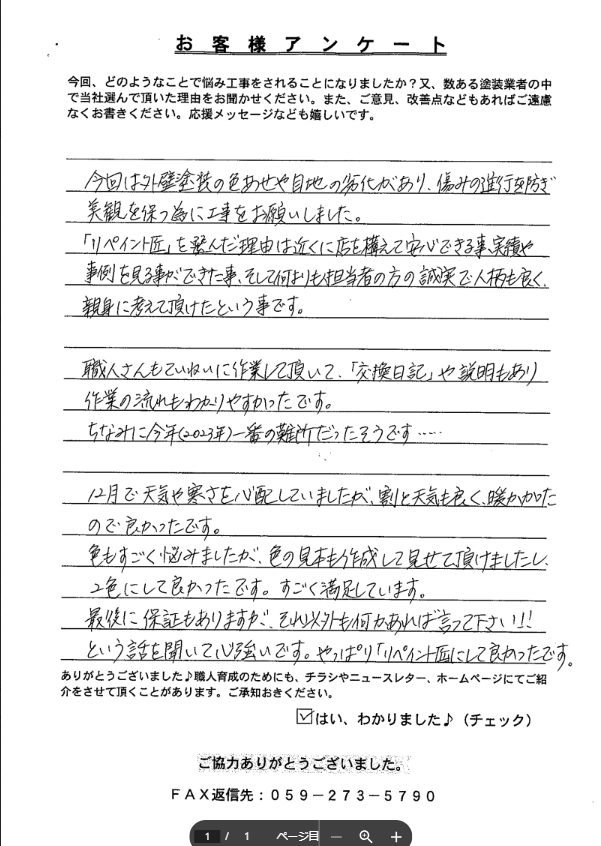 お客様アンケート
今回、どのようなことで悩み工事をされることになりましたか？又、数ある塗装業者の中
で当社選んで頂いた理由をお聞かせください。また、ご意見、改善点などもあればご遠慮
なくお書きください。応援メッセージなども嬉しいです。
今回は外壁塗装の色あせや目地の劣化があり、傷みの進行を防ぎ
美観を保つ為に工事をお願いしました。
「リペイント匠」を選んだ理由は近くに店を構えて安心できる事、実績や
事例を見る事ができた事、そして何よりも担当者の方の誠実で人柄も良く、
親身に考えて頂けたという事です。
職人さんもていねいに作業して頂いて、「交換日記」や説明もあり
作業の流れもわかりやすかったです。
ちなみに今年(2023年)一番の難所だったそうです……
12月で天気や寒さを心配していましたが、割と天気も良く、暖かかった
ので良かったです。
色もすごく悩みましたが、色の見本も作成して見せて頂けましたし、
2色にして良かったです。すごく満足しています。
最後に保証もありますが、それ以外も何かあれば言って下さい!!
という話を聞いて心強いです。やっぱり「リペイント匠」にして良かったです。
ありがとうございました♪職人育成のためにも、チラシやニュースレター、ホームページにてご紹
介をさせて頂くことがあります。ご承知おきください。
☑はい、わかりました♪（チェック）
ご協力ありがとうございました。
ＦＡＸ返信先：０５９－２７３－５７９０
1 / 1 ページ目 — +